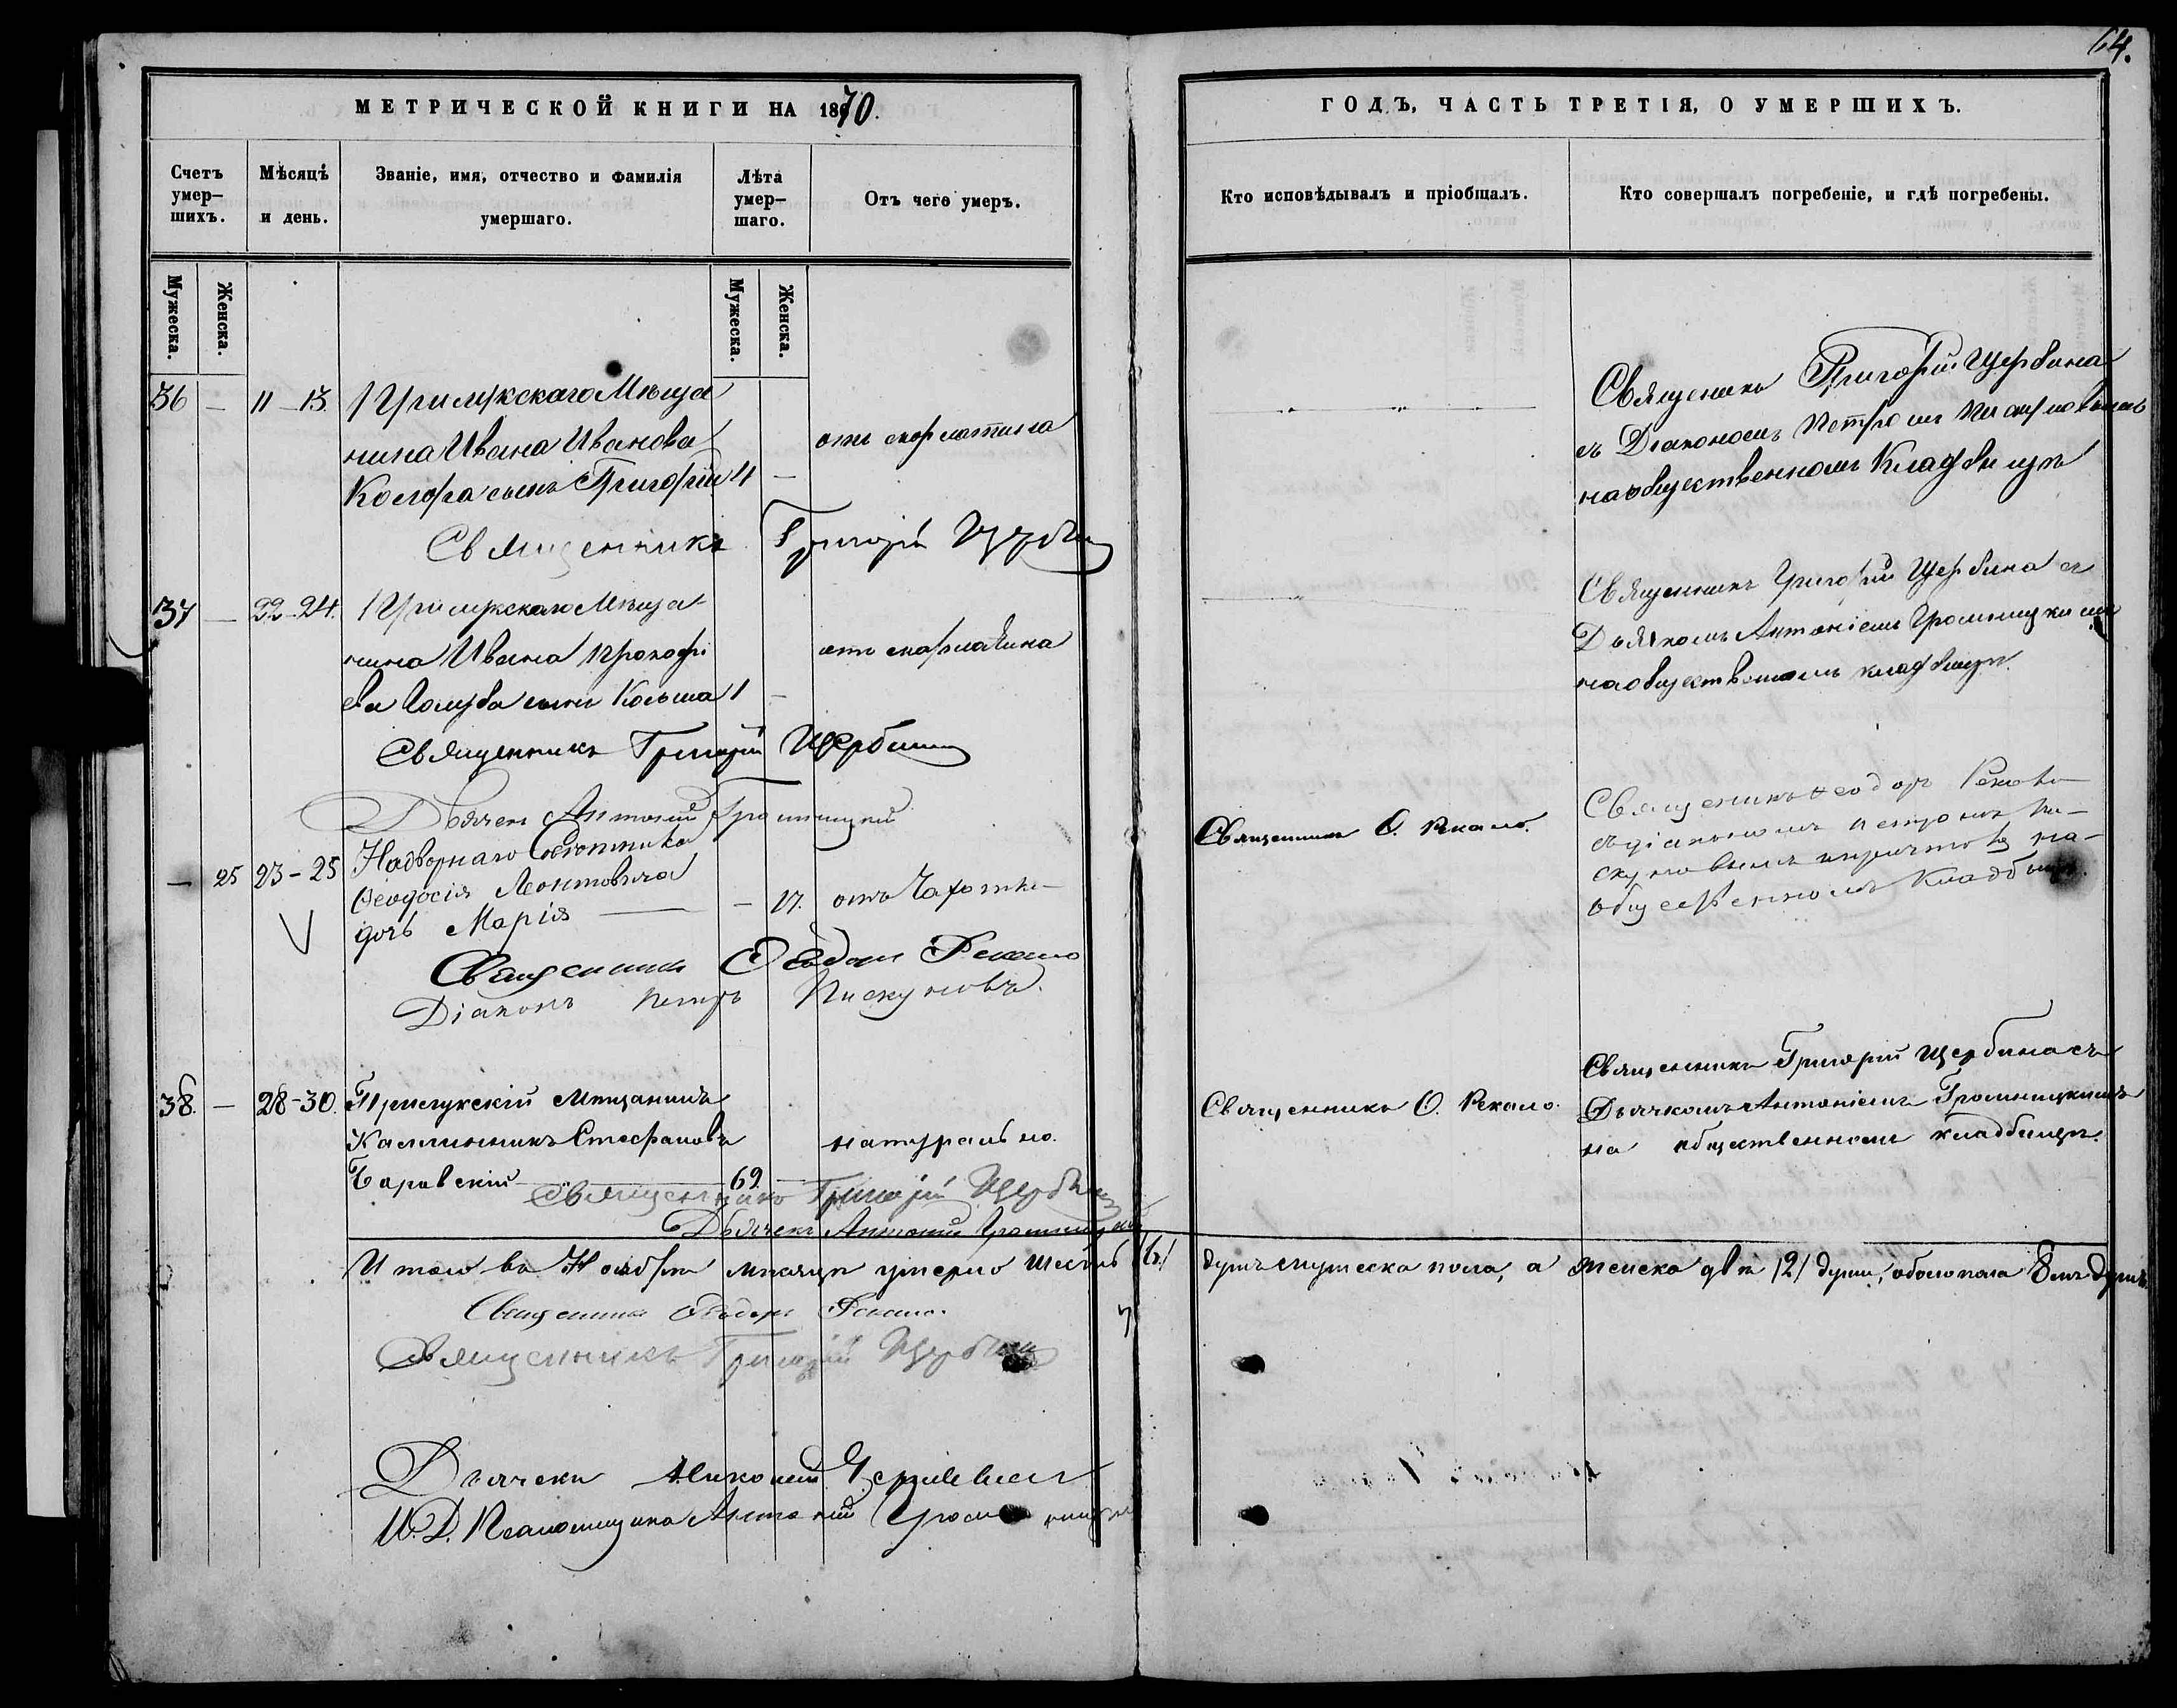 64.
МЕТРИЧЕСКОЙ КНИГИ НА 1870.
ГОДЪ, ЧАСТЬ ТРЕТІЯ, О УМЕРШИХЪ.
Счетъ умер-шихъ.
Мѣсяцъ и день.
Званіе, имя, отчество и фамилія умершаго.
Лѣта умер-шаго.
Отъ чего умеръ.
Кто исповѣдывалъ и пріобщалъ.
Кто совершалъ погребеніе, и гдѣ погребены.
Мужеска.
Женска.
Мужеска.
Женска.
36 — 11-13. Прилукскаго Мѣща
нина Ивана Иванова
сынъ Григорій 4 —
отъ скорлатина
Священникъ Григорій Щербина
съ Діакономъ Петромъ Пискуновымъ
на общественномъ Кладбищѣ
Священникъ Григорій Щербина
37 — 22-24. Прилукскаго Мѣща-
нина Ивана Прокофі
ева Голуба сынъ Косьма 1 —
отъ скарлатина
Священникъ Григорій Щербина съ
Дьячкомъ Антоніемъ Громницкимъ
на общественномъ кладбищѣ.
Священникъ Григорій Щербина
Дьячекъ Антоній Громницкій
— 25 23-25 Надворнаго Совѣтника
Ѳеодосія Леонтовича
дочь Марія — 17. отъ Чахотки
Священникъ Ѳ. Рекало.
Священникъ Ѳеодоръ Рекало
съ діакономъ Петромъ Пи-
скуновымъ на-
общественномъ Кладбищѣ.
Священникъ Ѳеодоръ Рекало
Діаконъ Петръ Пискуновъ.
38. — 28-30. Прилукскій Мѣщанинъ
Каллинникъ Стефановъ
Боровскій 69. —
натурально.
Священникъ Ѳ. Рекало.
Священникъ Григорій Щербина съ
Дьячкомъ Антоніемъ Громницкимъ
на общественномъ кладбищѣ.
Священникъ Григорій Щербина
Дьячекъ Антоній Громницкій
Итого въ Ноябрѣ мѣсяцѣ умерло шесть /6/ душъ мужеска пола, а женска двѣ /2/ души, обоего пола 8мъ душъ.
Священникъ Ѳеодоръ Рекало.
Священникъ Григорій Щербина
Дьячекъ
И. Д. Псаломщика Антоній Громницкій